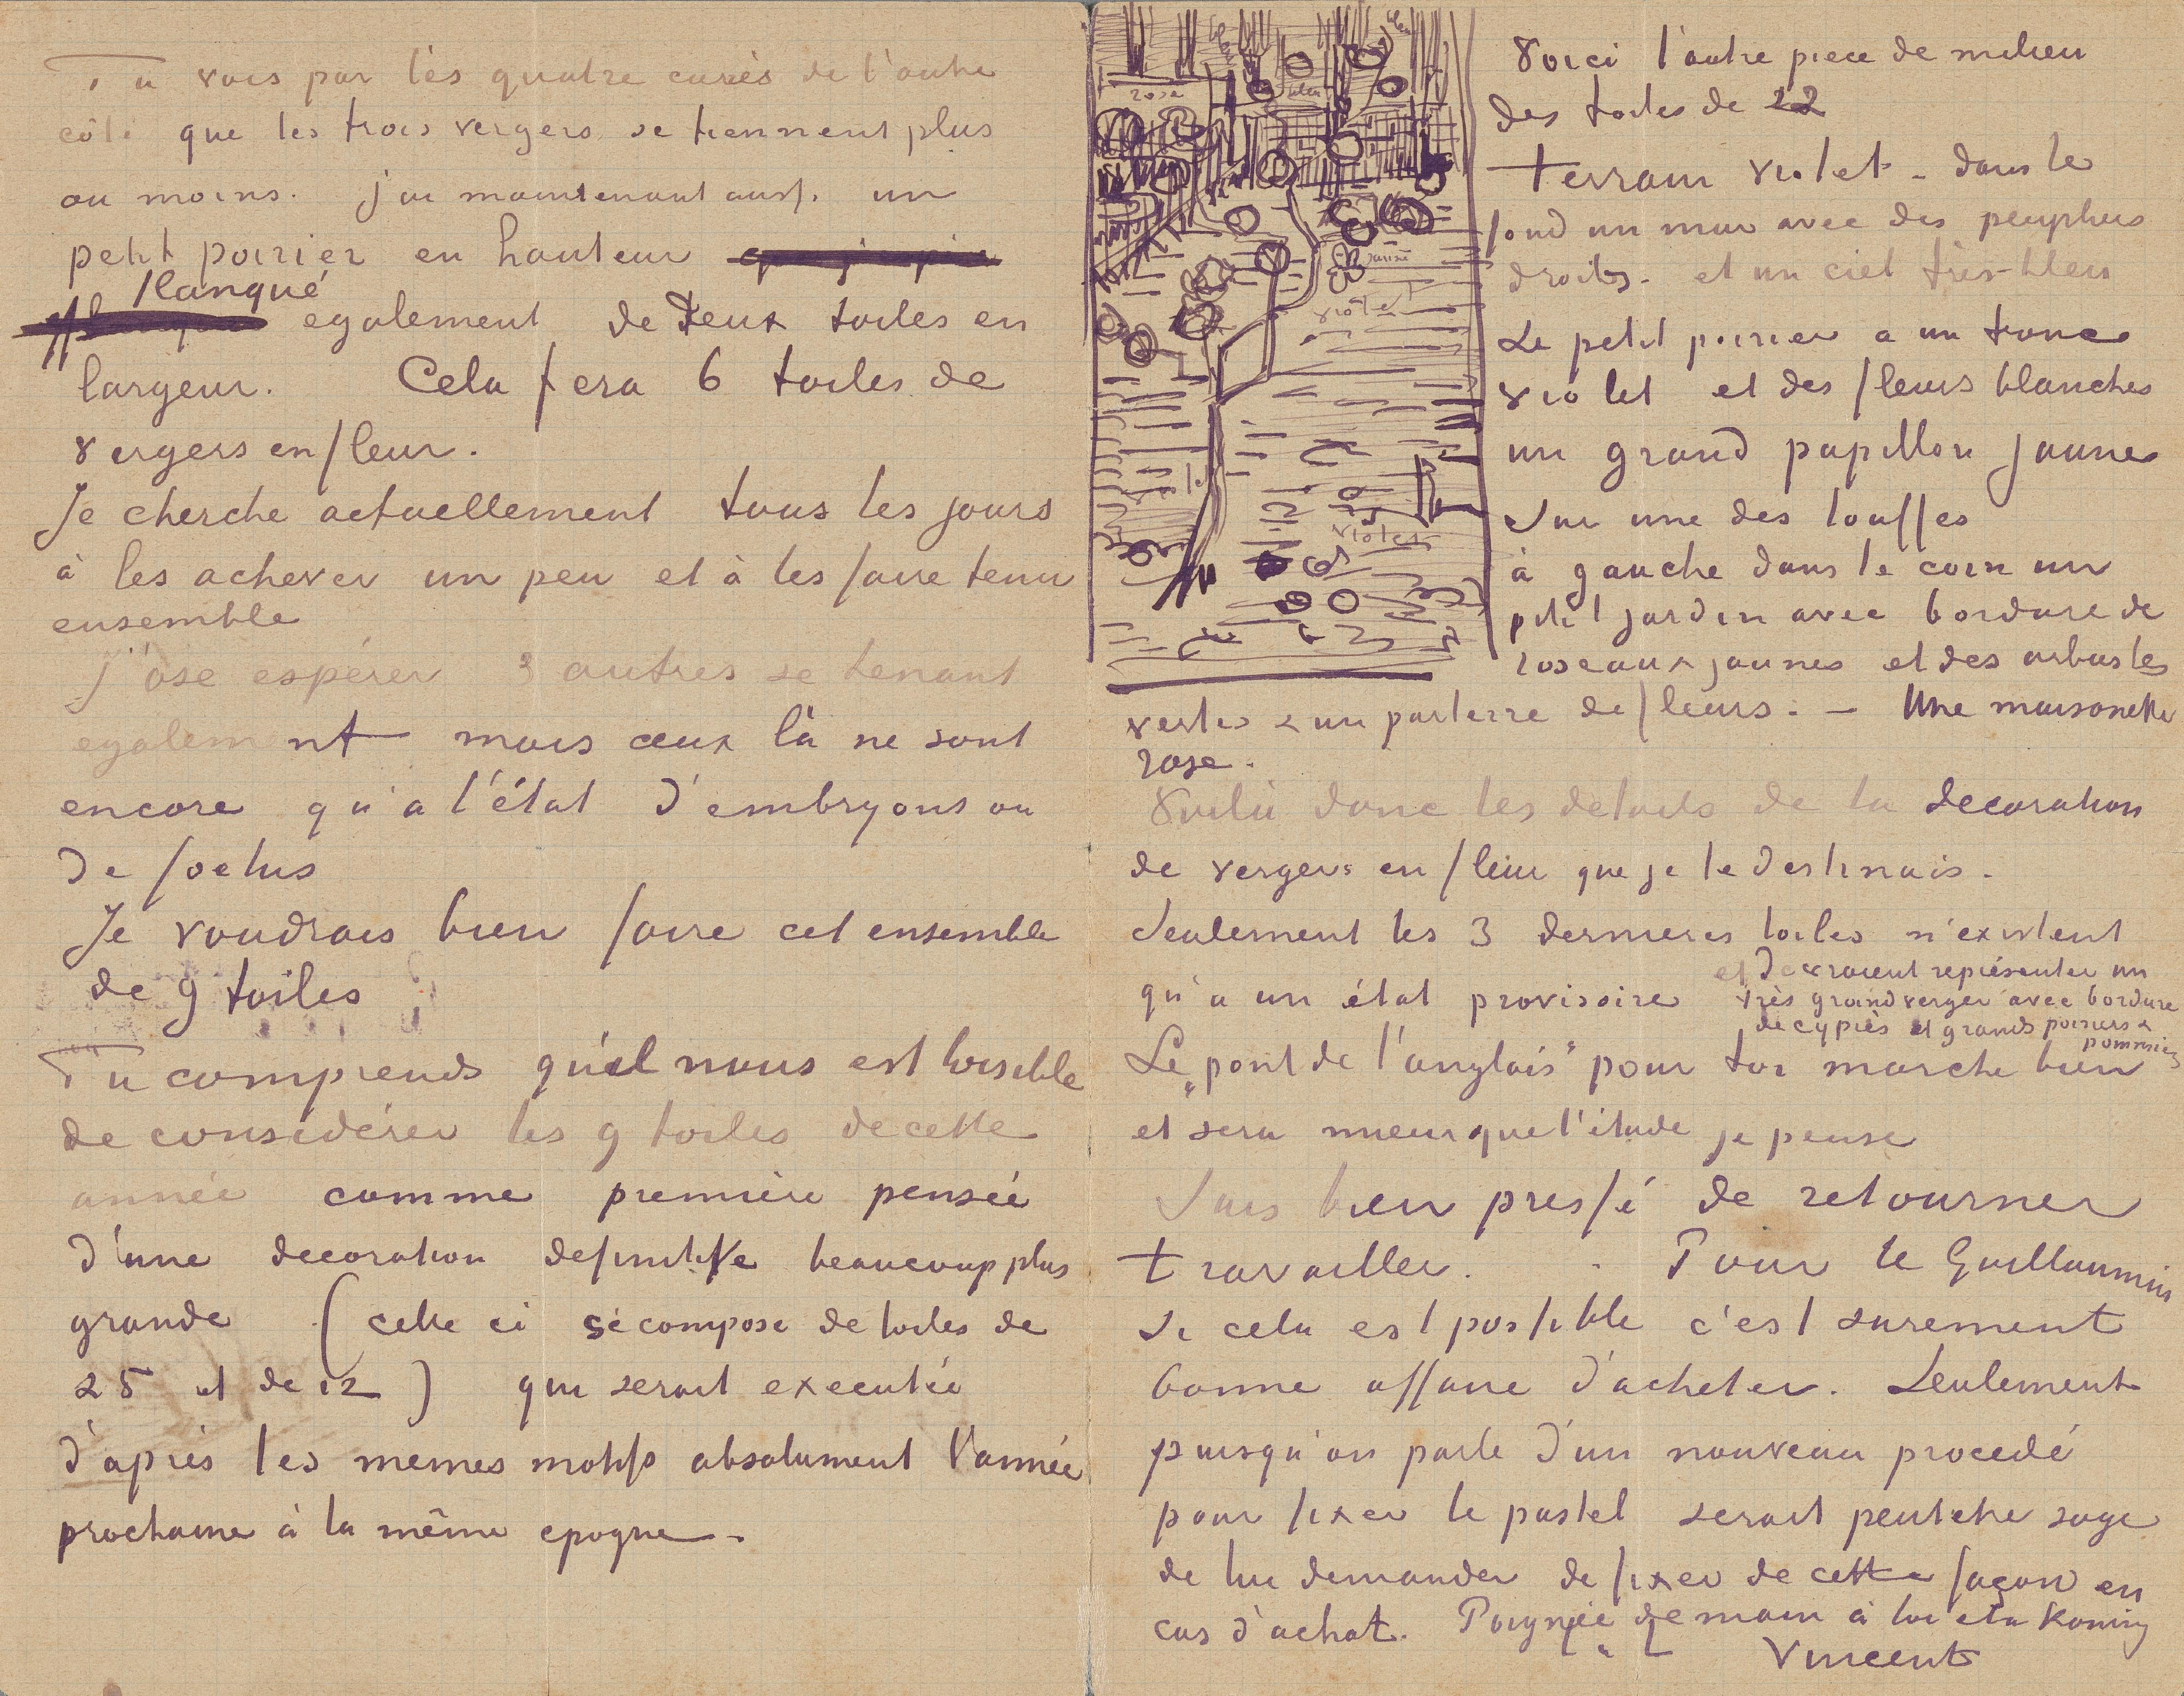 Tu vois par les quatre carrés de l'autre
côté que les trois vergers se tiennent plus
ou moins. j'ai maintenant aussi un
petit poirier en hauteur
flanqué
egalement de deux toiles en
largeur. Cela fera 6 toiles de
vergers en fleur.
Je cherche actuellement tous les jours
à les achever un peu et à les faire tenir
ensemble
J'ose espérer 3 autres se tenant
egalement mais ceux là ne sont
encore qu'a l'état d'embryons ou
de foetus
Je voudrais bien faire cet ensemble
de 9 toiles
Tu comprends qu'il nous est loisible
de considérer les 9 toiles de cette
année comme première pensée
d'une decoration definitive beaucoup plus
grande (celle ci se compose de toiles de
25 et de 12) qui serait executée
d'après les memes motifs absolument l'année
prochaine à la même epoque.
rose
bleu
jaune
violet
violet
violet
Voici l'autre piece de milieu
des toiles de 12
terrain violet - dans le
fond un mur avec des peupliers
droits - et un ciel très-bleu
Le petit poirier a un tronc
violet et des fleurs blanches
un grand papillon jaune
sur une des touffes
à gauche dans le coin un
petit jardin avec bordure de
roseaux jaunes et des arbustes
verts & un parterre de fleurs. - Une maisonette
rose.
Voilà donc les details de la decoration
de vergers en fleur que je te destinais.
Seulement les 3 dernieres toiles n'existent
qu'a un état provisoire et devraient représenter un
très grand verger avec bordure
de cyprès et grands poiriers &
pommiers
Le „pont de l'anglais" pour toi marche bien
et sera mieux que l'étude je pense
Suis bien pressé de retourner
travailler. Pour le Guillaumin
si cela est possible c'est surement
bonne affaire d'acheter. Seulement
puisqu'on parle d'un nouveau procedé
pour fixer le pastel serait peutetre sage
de lui demander de fixer de cette façon en
cas d'achat. Poignée de main à toi et à Koning
Vincent